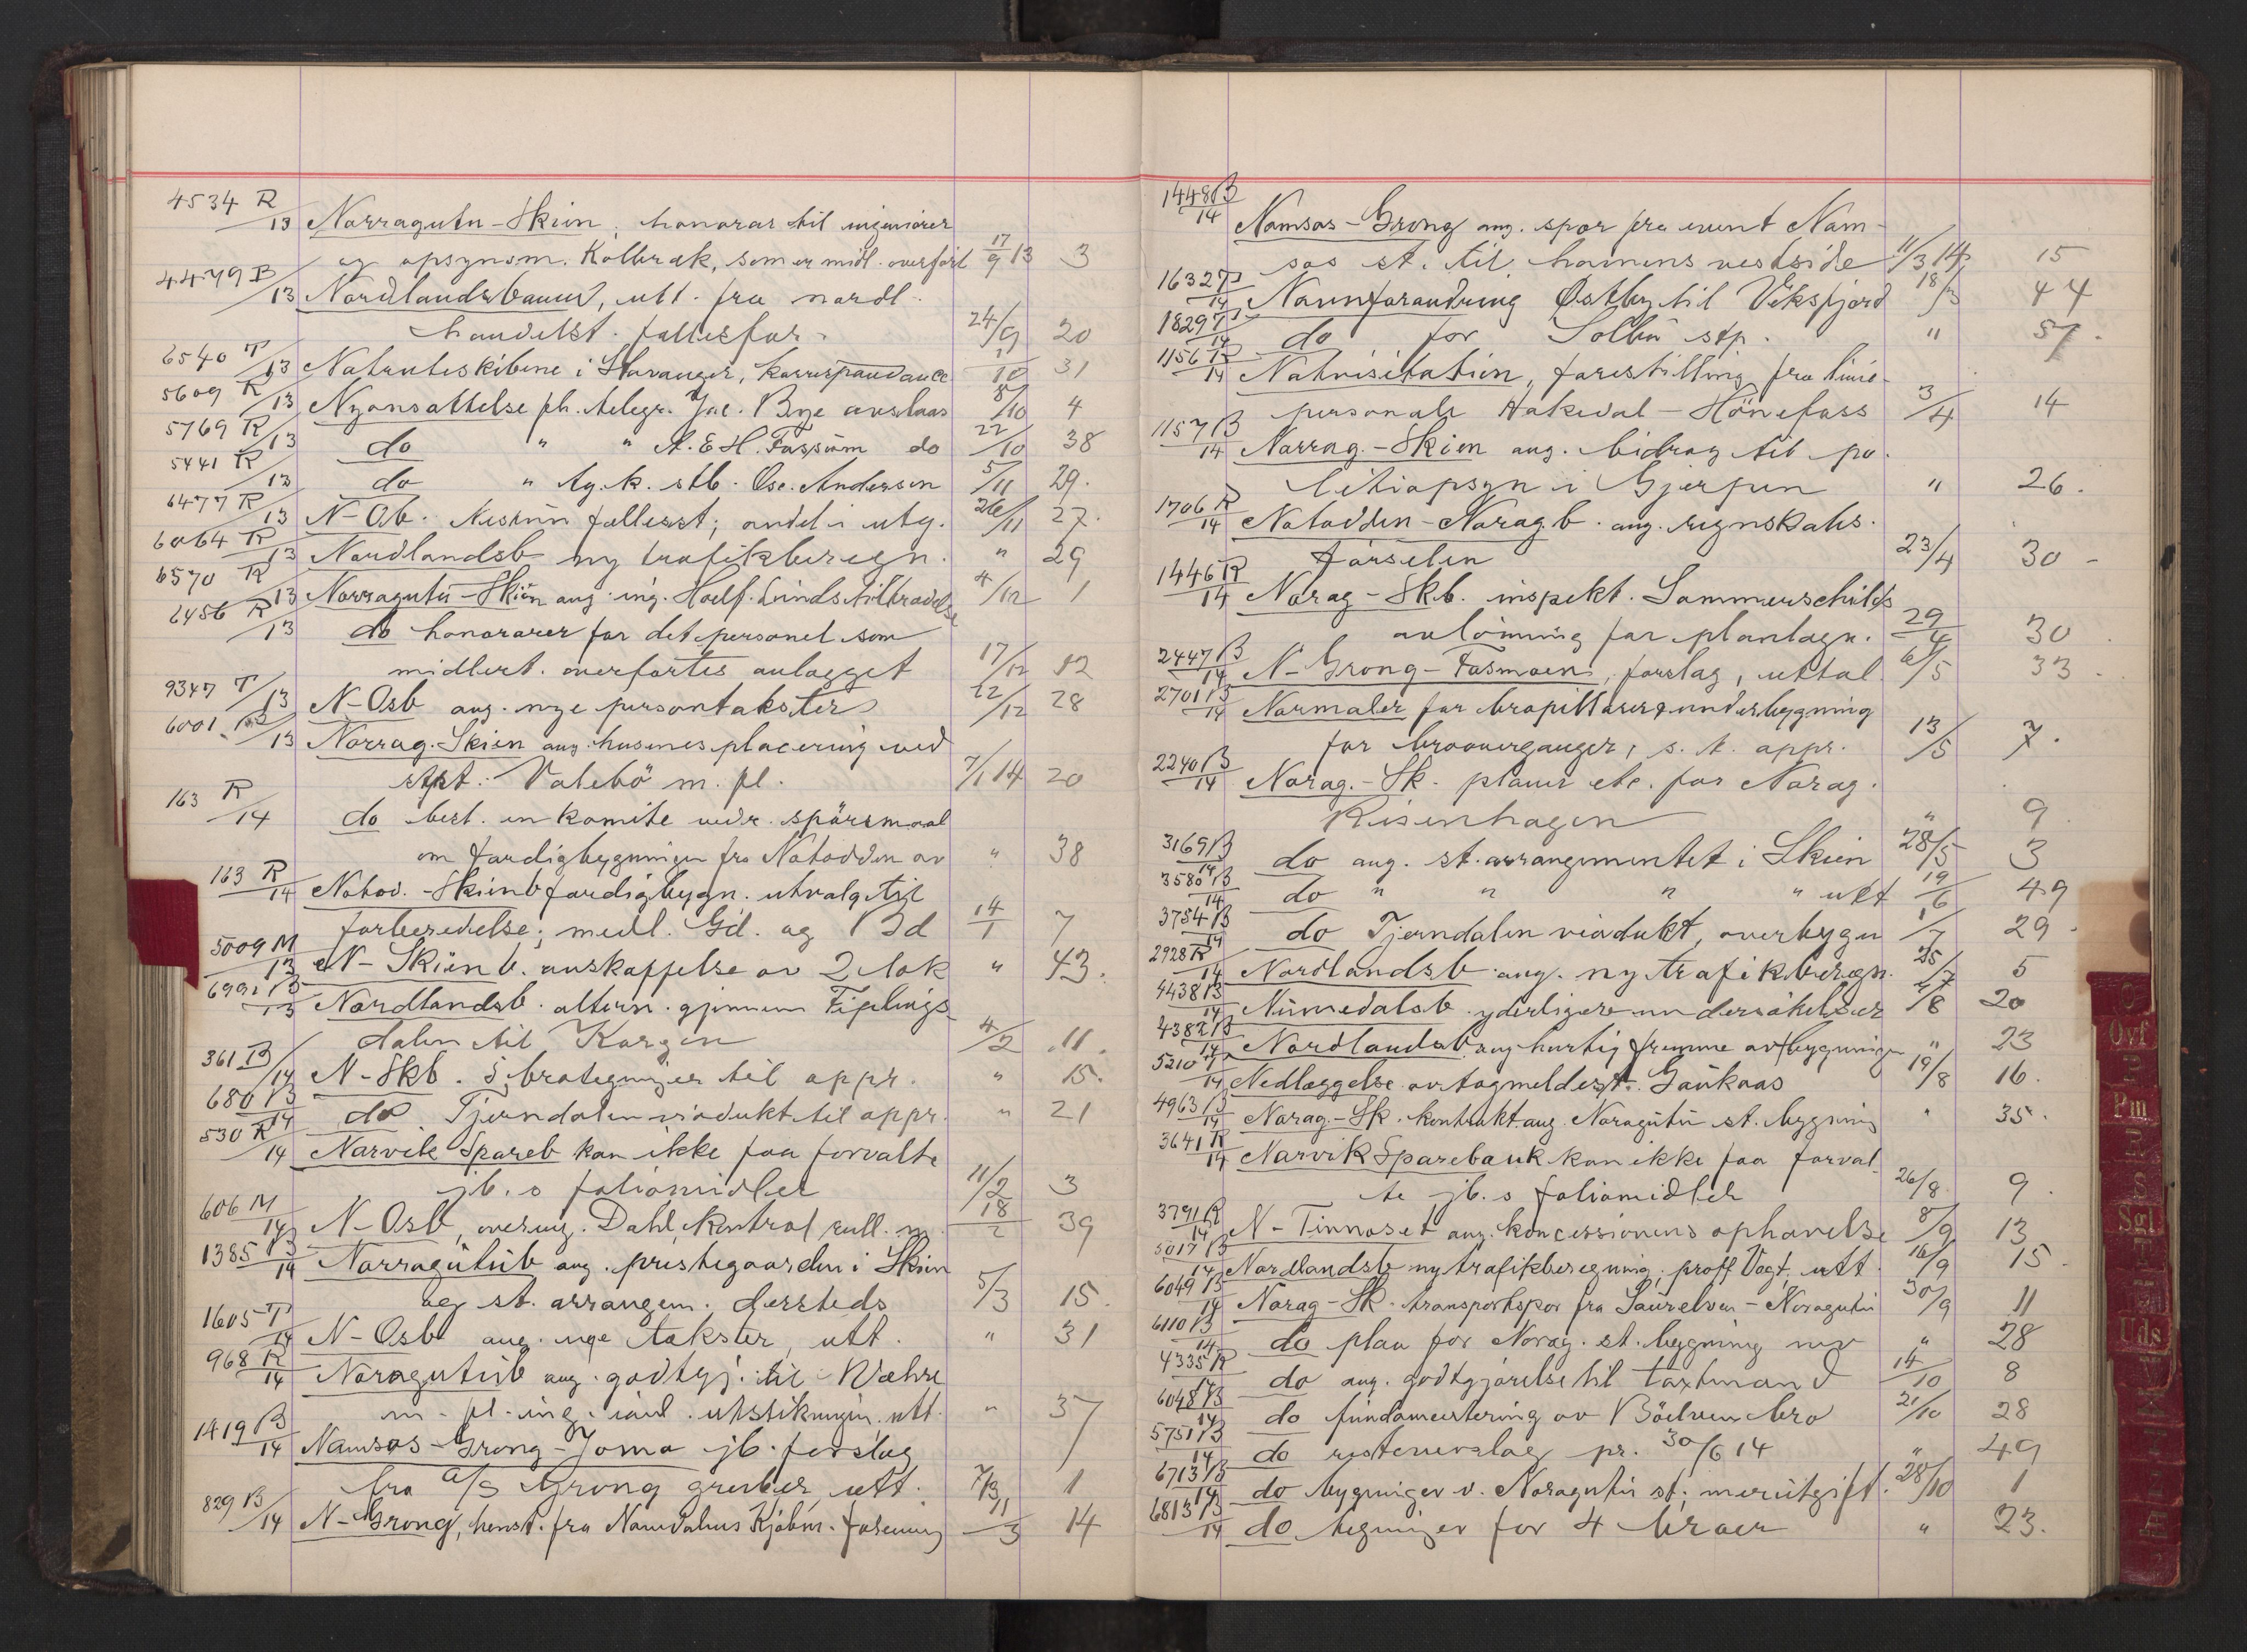 4534 R
/13 Norragutu-Skien, honorar til ingeniører
og opsynsm. Kolbræk, som er midl. overført 17/9 13 3
4479 B
/13 Nordlandsbanen, utt. fra nordl.
handelst. fællesfor. 24/9 20
6540 T
/13 Naturhteskibene i Stavanger, korrespondance 1/10 31
5609 R
/13 Nyansættelse ph. telegr. Jac. Bye avslaas 8/10 4
5769 R
/13 do " " A.E.H. Fossum do 22/10 38
5441 R
/13 do " tg.k. stb. Osc. Andersen 5/11 29.
6477 R
/13 N-Ob. Nesttun fællesst; andel i utg. 26/11 27.
6064 R
/13 Nordlandsb ny trafikberegn. " 29
6570 R
/13 Norragutu-Skien ang. ing. Hoelf. Lunds tiltrædelse 4/12 1
6456 R
/13 do honorarer for det personel som
midlert. overførtes anlægget 17/12 12
9347 T
/13 N-Osb ang. nye persontakster 22/12 28
6001 B
/13 Norrag. Skien ang. husenes placering ved
stpt. Valebö m. pl. 7/1 14 20
163 R
/14 do best. en komite vedr. spörsmaal
om færdigbygningen fra Notodden av " 38
163 R
/14 Notod.-Skienb færdigbygn. utvalg til
forberedelse; medl. Gd. og Bd 14/1 7
5009 M
/13 N-Skien b. anskaffelse av 2 lok " 43.
6991 B
/13 Nordlandsb. altern. gjennem Fiplings-
dalen til Korgen 4/2 11.
361 B
/14 N-Skb. 5 brotegninger til appr. " 15.
680 B
/14 do Tjerndalen viadukt til appr. " 21
530 R
/14 Narvik Spareb kan ikke faa forvalte
jb.s foliomidler 11/2 3
606 M
/14 N-Osb, overing. Dahl, kontrol rull. m. 18/2 39
1385 B
/14 Norragutub ang. prestegaarden i Skien
og st. arrangem. dersteds 5/3 15.
1605 T
/14 N-Osb ang. nye takster, utt. " 31
968 R
/14 Noragutub ang. godtgj. til Wæhre
m. pl. ing. ved. utstikningen, utt. " 37
1419 B
/14 Namsos-Grong-Joma jb. forslag
fra A/S Grong gruber, utt. 7/3 1
829 B
/14 N-Grong, henst. fra Namdalens Kjöbm. forening 11/3 14
1448 B
/14 Namsos-Grong ang. spor fra event Nam-
sos st. til havnens vestside 11/3 14 15
1632 T
/14 Navneforandring Østby til Veksfjord 18/3 44
1829 T
/14 do for Solbu stp. " 57.
1156 R
/14 Natvisitation, forestilling fra linie-
personale Hakedal-Hönefoss 3/4 14
1157 B
/14 Norrag.-Skien ang. bidrag til po-
litiopsyn i Gjerpen " 26.
1706 R
/14 Notodden-Norag.b. ang. regnskabs-
förselen 23/4 30-
1446 R
/14 Norag-Skb. inspekt. Sommerschilds
avlönning for planlægn. 29/4 30
2447 B
/14 N-Grong-Fosmoen, forslag, uttal. 6/5 33.
2701 B
/14 Normaler for bropillarer & underbygning
for broovergange, s. t. appr. 13/5 7.
2240 B
/14 Norag.-Sk. planer etc. for Norag.
Risenhagen " 9
3169 B
/14 do ang. st.arrangementet i Skien 28/5 3
3580 B
/14 do " " " " utt 19/6 49
3754 B
/14 do Tjerndalen viadukt, overbygn 1/7 29.
2928 R
/14 Nordlandsb ang. ny trafikberegn. 25/7 5
4438 B
/14 Numedalsb yderligere undersökelser 4/8 20
4382 B
/14 Nordlandsb ang hurtig fremme av bygningen " 23
5210 T
/14 Nedlæggelse av togmeldest. Gaukaas 19/8 16.
4963 B
/14 Norag-Sk. kontrakt ang. Noragutu st. bygning " 35.
3641 R
/14 Narvik Sparebank kan ikke faa forval-
te jb.s foliomidler 26/8 9.
3791 R
/14 N-Tinnoset ang. koncessionens ophævelse 8/9 13
5017 B
/14 Nordlandsb ny trafikberegning; proff Vogt, utt. 16/9 15.
6049 B
/14 Norag-Sk. transportspor fra Saurelven-Noragutu 30/9 11
6110 B
/14 do plan for Norag. st. bygning mv " 28
4335 R
/14 do ang. godtgjörelse til taxtmænd 14/10 8
6048 B
/14 do fundamentering av Böelven bro 21/10 28
5751 B
/14 do restoverslag pr. 30/6 14 " 49
6713 B
/14 do bygninger v. Noragutu st; merutgift. 28/10 1
6813 B
/14 do tegninger for 4 broer " 23.
Ovf
P
Pm
R
S
Sgl
T
U
Uds